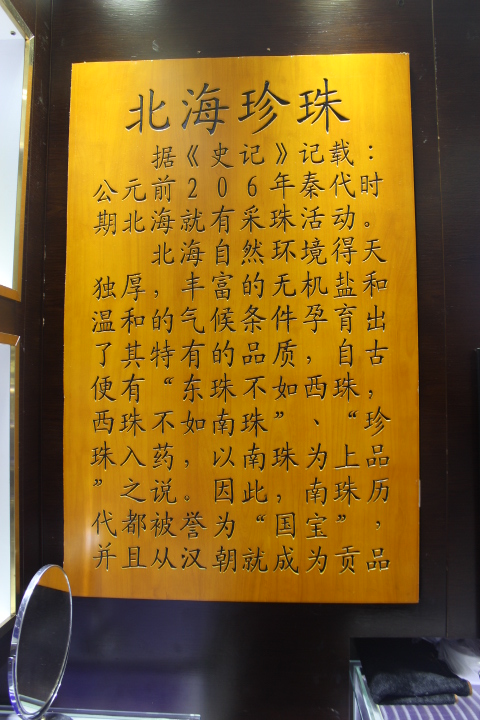 北海珍珠
据《史记》记载：
公元前206年秦代时
期北海就有采珠活动。
北海自然环境得天
独厚，丰富的无机盐和
温和的气候条件孕育出
了其特有的品质，自古
便有“东珠不如西珠，
西珠不如南珠”、“珍
珠入药，以南珠为上品
”之说。因此，南珠历
代都被誉为“国宝”，
并且从汉朝就成为贡品